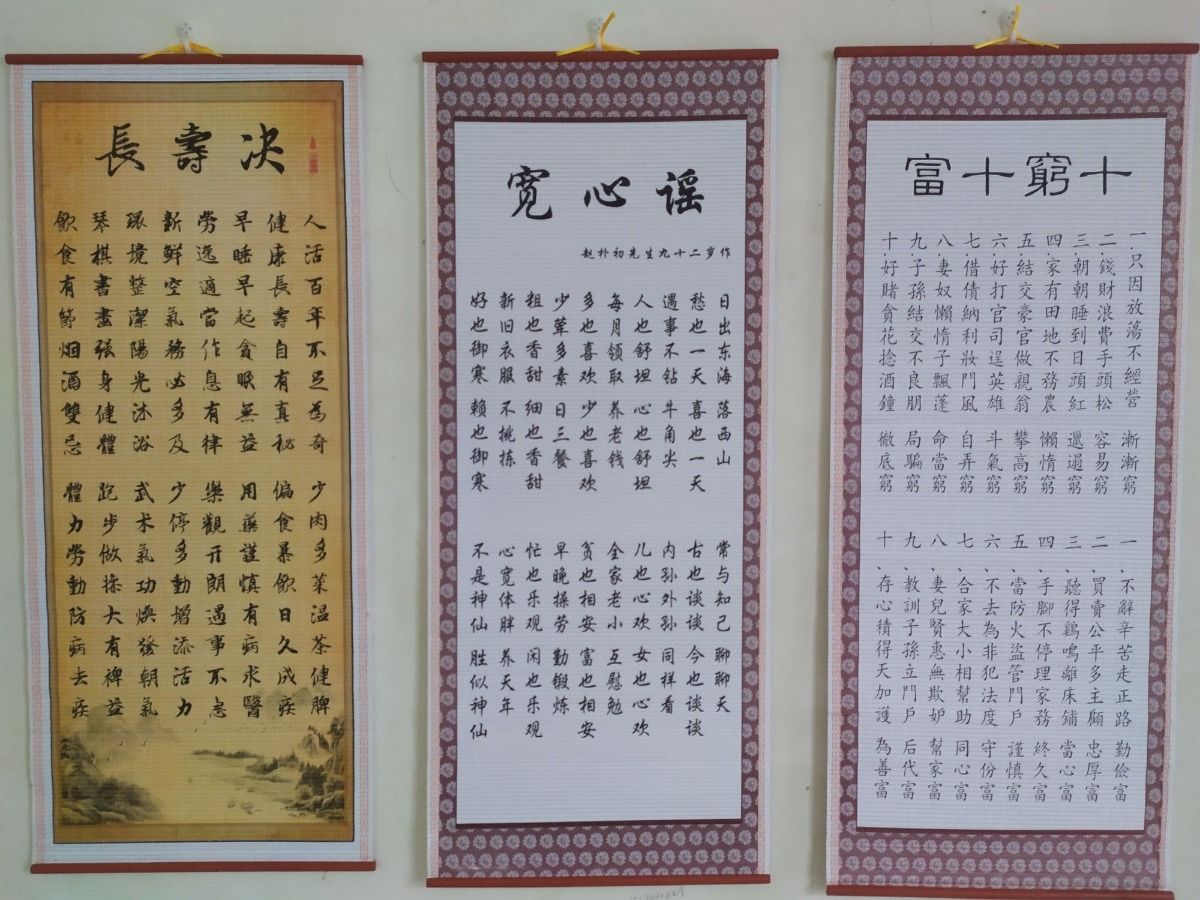 長壽决
人活百年不足為奇
健康長壽自有真秘
早睡早起貪眠無益
勞逸適當作息有律
新鮮空氣務必多及
環境整潔陽光沐浴
琴棋書畫强身健體
飲食有節烟酒雙忌
少肉多菜温茶健脾
偏食暴飲日久成疾
用藥謹慎有病求醫
樂觀开朗遇事不急
少停多動增添活力
武术氣功焕發朝氣
跑步做操大有裨益
體力勞動防病去疾
宽心谣
赵朴初先生九十二岁作
日出东海 落西山
愁也一天 喜也一天
遇事不钻 牛角尖
人也舒坦 心也舒坦
每月领取 养老钱
多也喜欢 少也喜欢
少荤多素 日三餐
粗也香甜 细也香甜
新旧衣服 不挑拣
好也御寒 赖也御寒
常与知己 聊聊天
古也谈谈 今也谈谈
内孙外孙 同样看
儿也心欢 女也心欢
全家老小 互慰勉
贫也相安 富也相安
早晚操劳 勤锻炼
忙也乐观 闲也乐观
心宽体胖 养天年
不是神仙 胜似神仙
十窮十富
一.只因放蕩不經營 漸漸窮
二.錢財浪費手頭松 容易窮
三.朝朝睡到日頭紅 邋遢窮
四.家有田地不務農 懶惰窮
五.結交豪官做親翁 攀高窮
六.好打官司逞英雄 斗氣窮
七.借債納利妝門風 自弄窮
八.妻奴懶惰子飄蓬 命當窮
九.子孫結交不良朋 局騙窮
十.好賭貪花捻酒鐘 徹底窮
一、不辭辛苦走正路 勤儉富
二、買賣公平多主顧 忠厚富
三、聽得鷄鳴離床鋪 當心富
四、手腳不停理家務 終久富
五、當防火盜管門戶 謹慎富
六、不去為非犯法度 守份富
七、合家大小相幫助 同心富
八、妻兒賢惠無欺妒 幫家富
九、教訓子孫立門戶 后代富
十、存心積得天加護 為善富